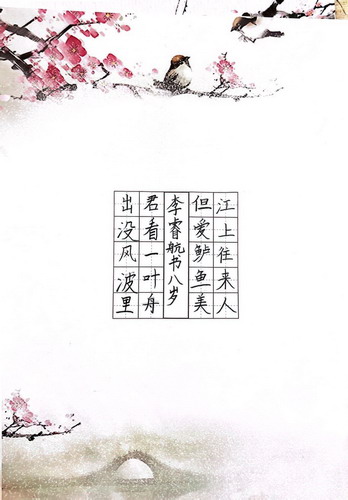 江上往来人
但爱鲈鱼美
李睿航书八岁
君看一叶舟
出没风波里